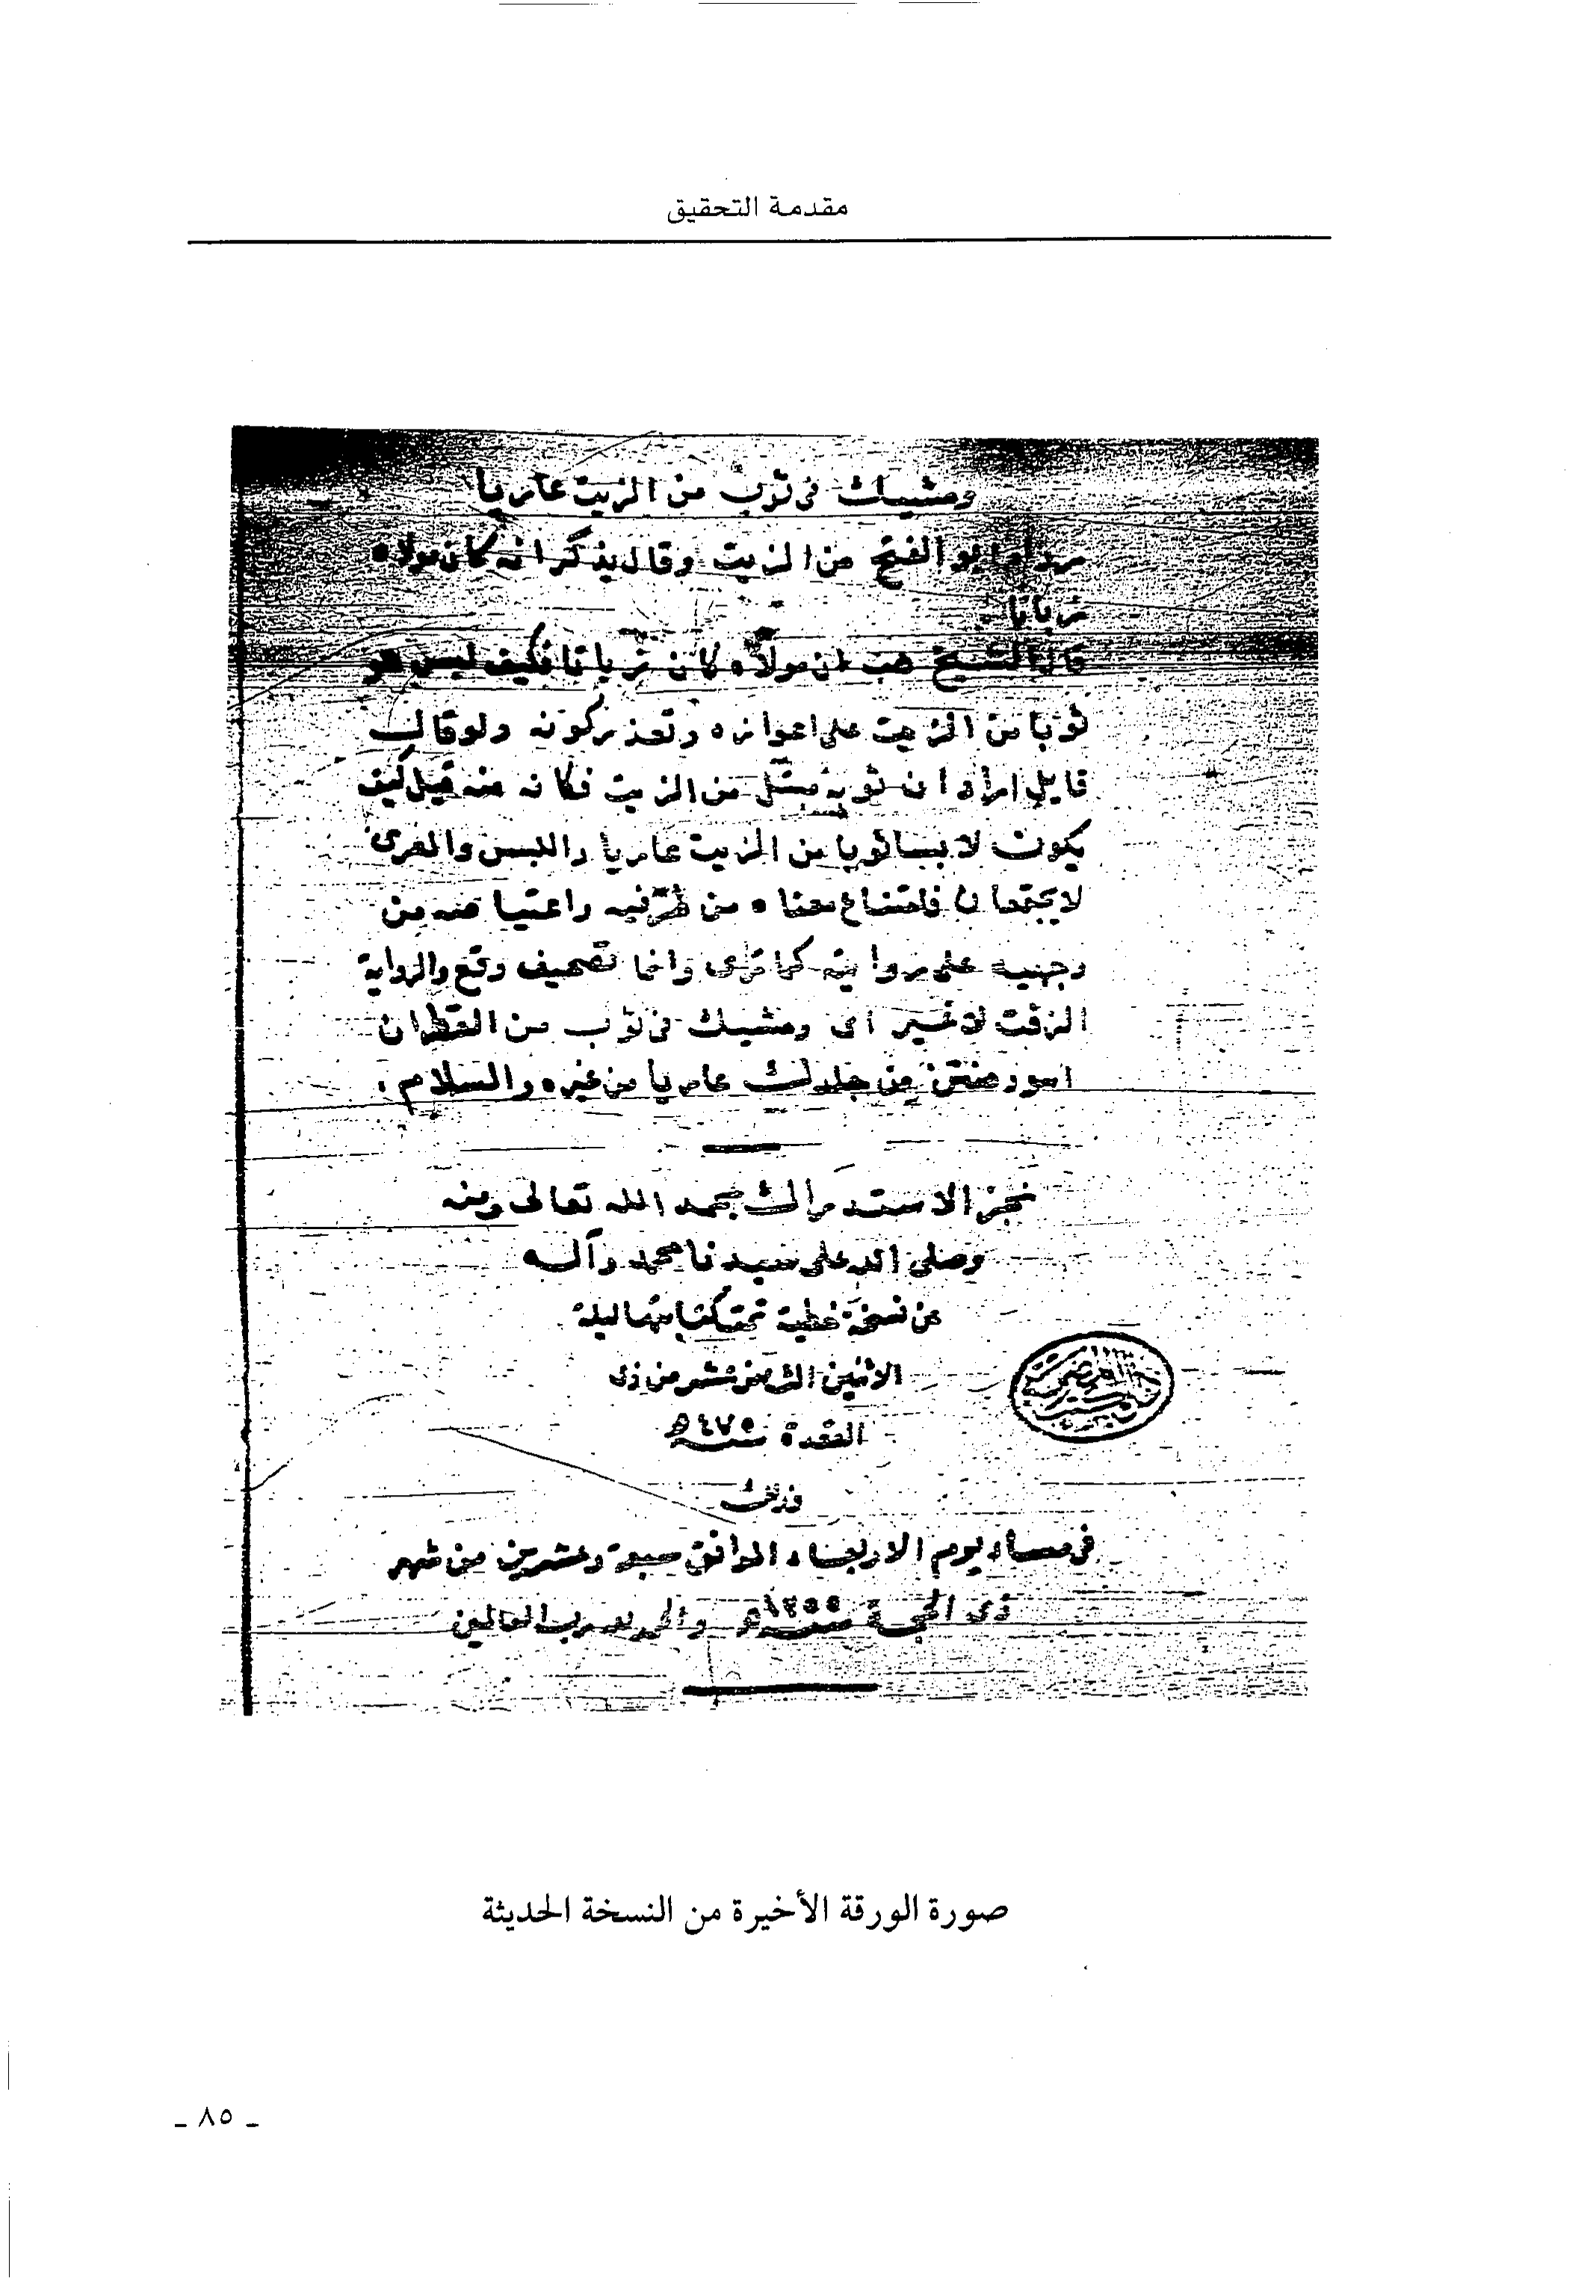 مقدمة التحقيق
ومشيك في ثوب من الزيت عاريا
رواه ابو الفتح من الزيت وقال يذكر انه كان مولاه
زياتا
قال الشيخ هب ان مولاه كان زياتا فكيف لبس هو
ثوبا من الزيت على اعوازه وتعذر كونه ولو قال
قايل اراد ان ثوبه مبتل من الزيت فكانه منه قيل كيف
يكون لابسا ثوبا من الزيت عاريا واللبس والعرى
لا يجتمعان فامتناع معناه من طرفيه واعتياصه من
وجهيه على روايته كما ترى وانما تصحيف وقع والرواية
الزفت لا غير اى ومشيك في ثوب من القطران
اسود من جلدك عاريا من غيره والسلام.
نجز الاستدراك بحمد الله تعالى ومنه
وصلى الله على سيدنا محمد وآله
من نسخة خطية تمت كتابتها ليلة
الاثنين الثامن عشر من ذى
القعدة سنة ٤٧٥ هـ
في مساء يوم الاربعاء الموافق سبعة وعشرين من شهر
ذى الحجة سنة ١٣٥٥ هـ والحمد لله رب العالمين
صورة الورقة الأخيرة من النسخة الحديثة
_ ٨٥ _